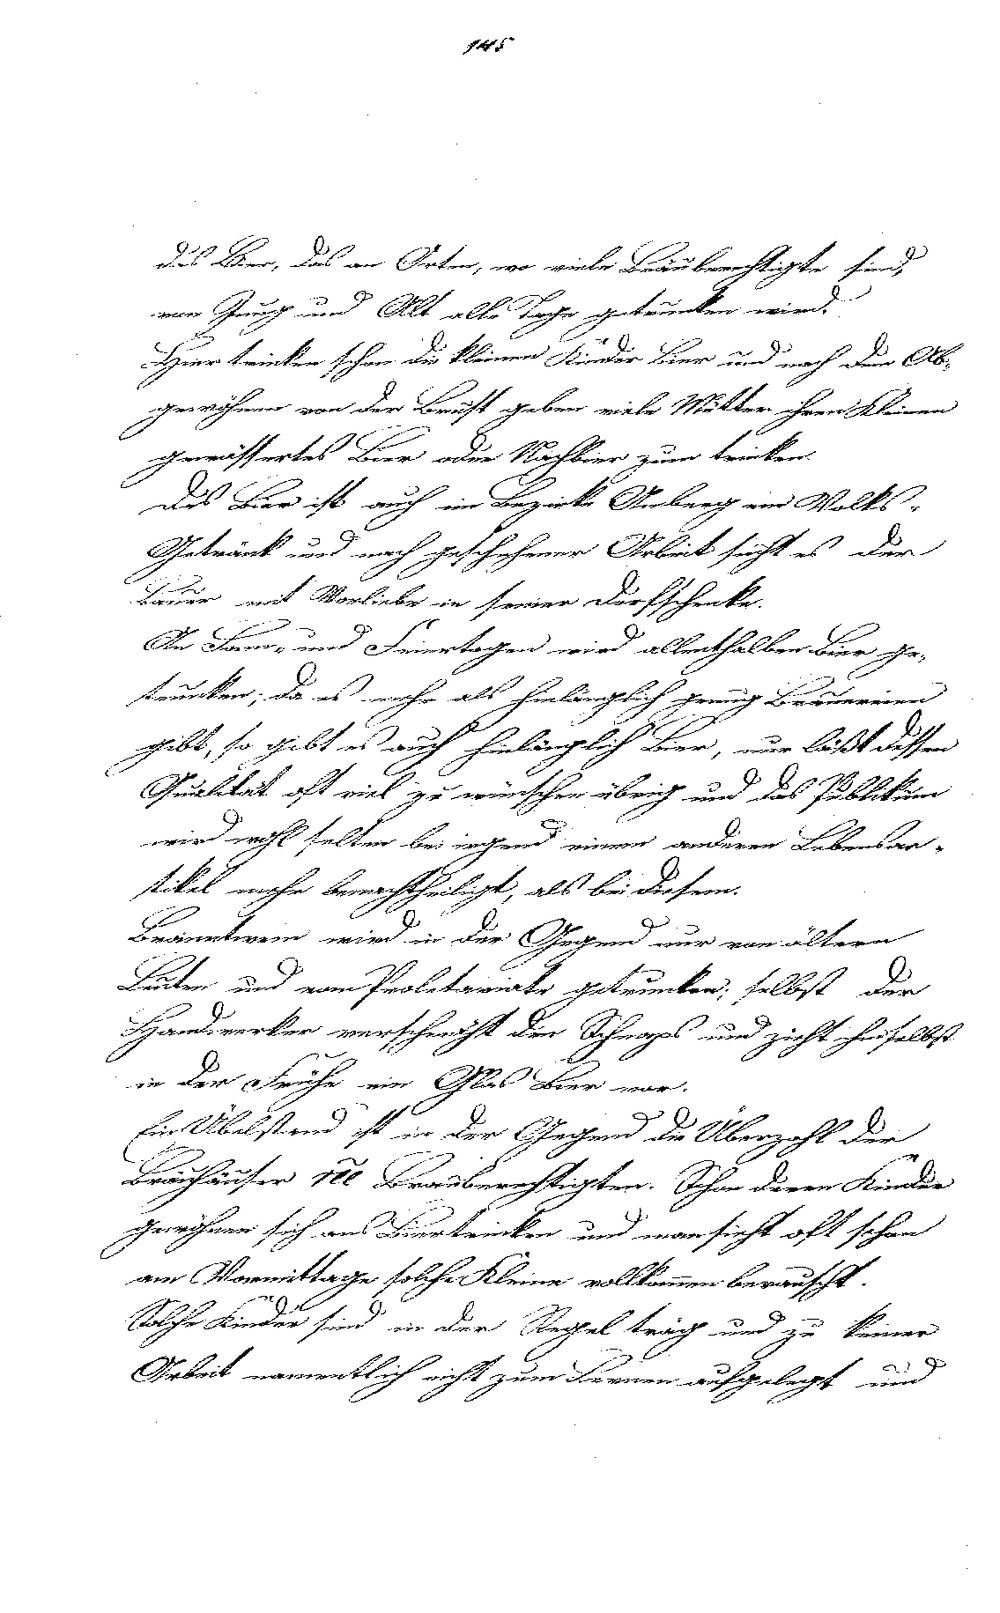 145
das Bier, das an Orten, wo viele Bräuberechtigte sind,
von Jung und Alt alle Tage getrunken wird.
Hier trinken schon die kleinen Kinder Bier und nach dem Ab-
gewöhnen von der Brust geben viele Mütter ihren Kleinen
gewässertes Bier oder Nachbier zum trinken.
Das Bier ist auch im Bezirke Amberg ein Volks-
Getränk und nach geschehener Arbeit sucht es der
Bauer mit Vorliebe in seiner Dorfschenke.
An Sonn- und Feiertagen wird allenthalben Bier ge-
trunken; da es mehr als hinlänglich genug Brauereien
gibt, so gibt es auch hinlänglich Bier, nur läßt dessen
Qualität oft viel zu wünschen übrig und das Publikum
wird wohl selten bei irgend einem anderen Lebensar-
tikel mehr benachtheiligt, als bei diesem.
Branntwein wird in der Gegend nur von ältern
Leuten und vom Proletariate getrunken; selbst der
Handwerker verschmäht den Schnaps und zieht ihm selbst
in der Frühe ein Glas Bier vor.
Ein Übelstand ist in der Gegend die Überzahl der
Bräuhäuser Bräuberechtigten. Schon deren Kinder
gewöhnen sich ans Biertrinken und man sieht oft schon
am Vormittage solche Kleine vollkommen berauscht.
Solche Kinder sind in der Regel träg und zu keiner
Arbeit namentlich nicht zum Lernen aufgelegt und